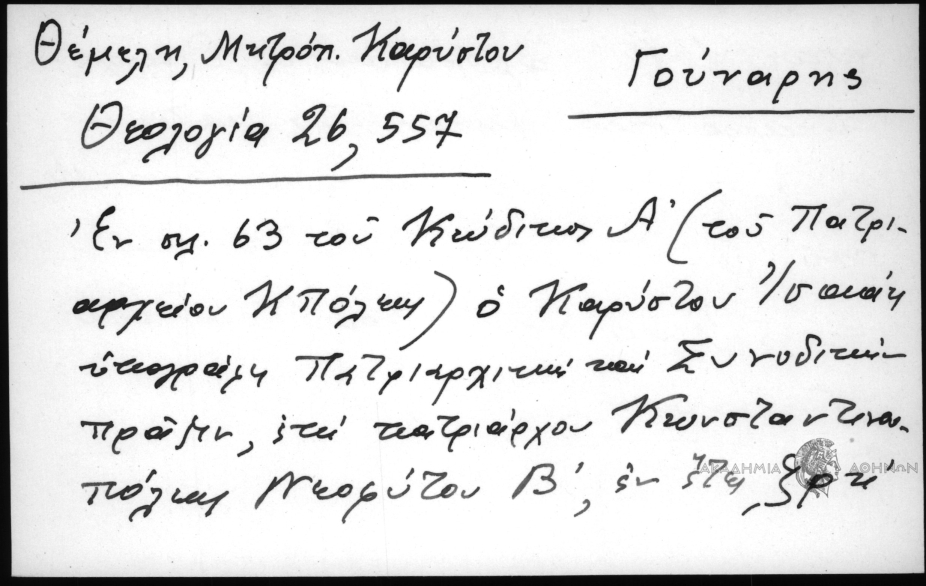 Θέμελη, Μητρόπ. Καρύστου
Γούναρης
Θεολογία 26, 557
Ἐν σελ. 63 τοῦ Κώδικος Α' (τοῦ Πατρι-
αρχείου ΚΠόλεως) ὁ Καρύστου Ἰσαάκ
ὑπογράφει Πατριαρχικήν καί Συνοδικήν
πρᾶξιν, ἐπί πατριάρχου Κωνσταντινου-
πόλεως Νεοφύτου Β', ἐν ἔτει
ΑΚΑΔΗΜΙΑ ΑΘΗΝΩΝ